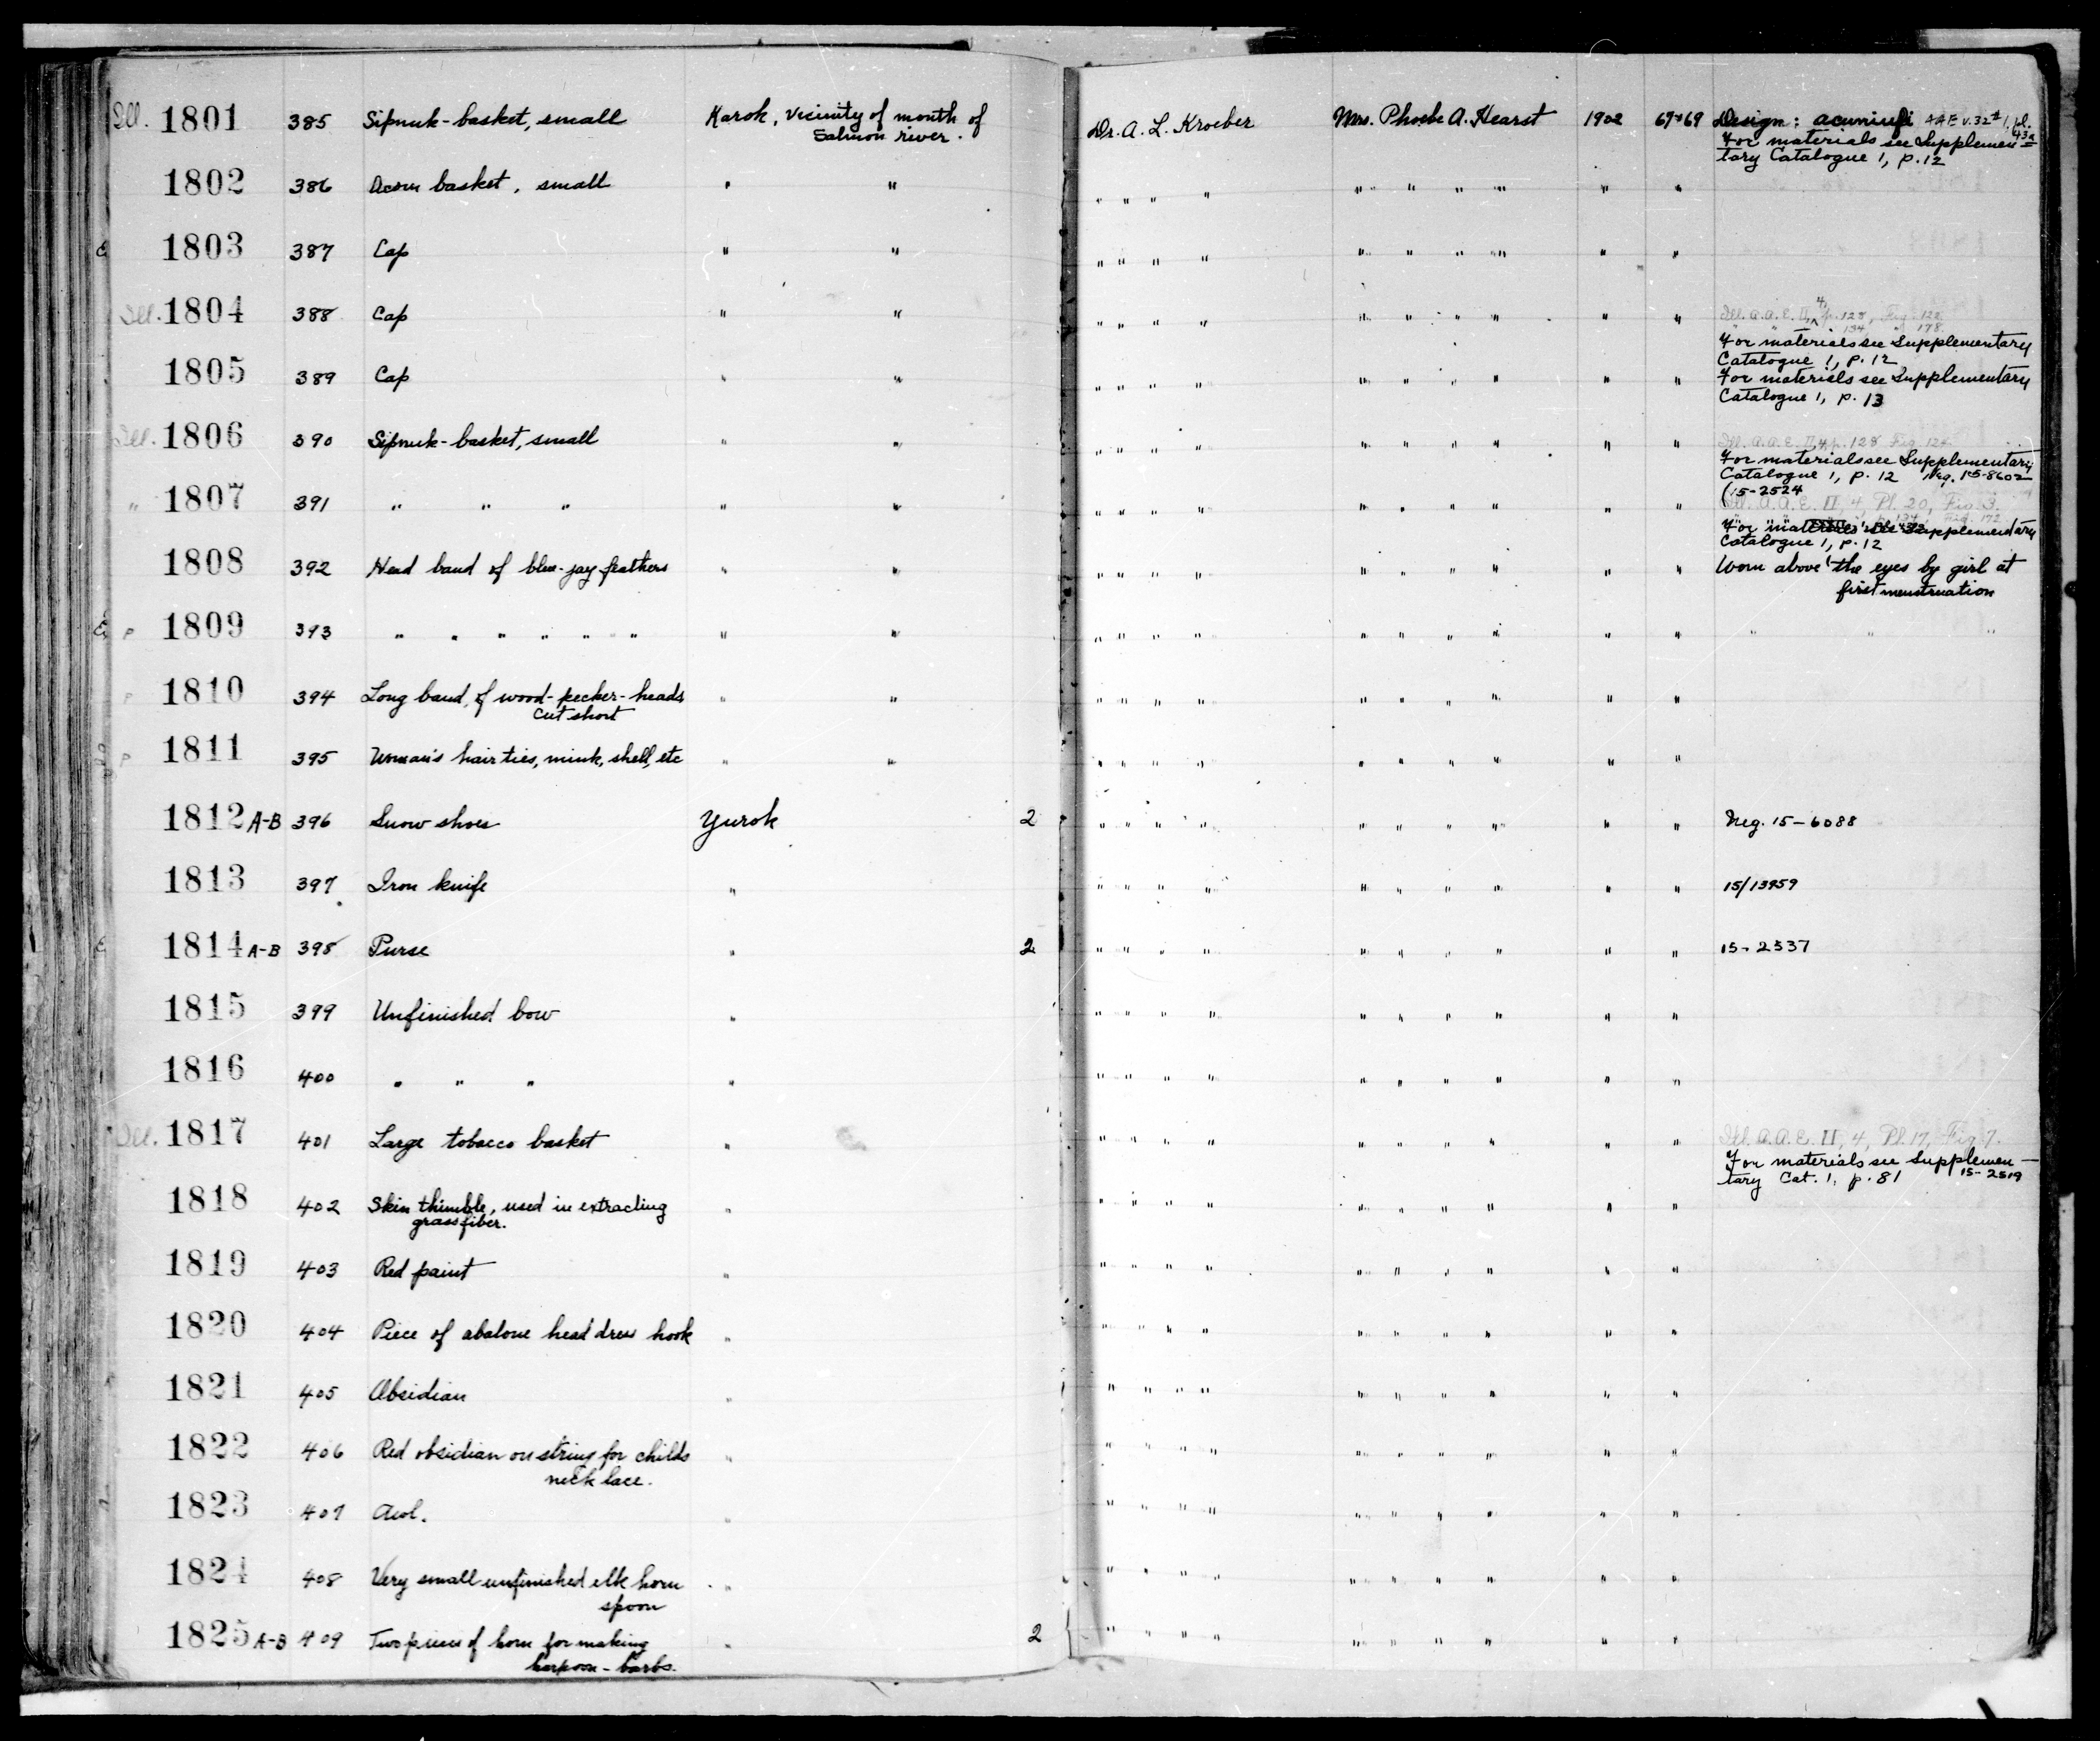 Ill. 1801 385 Sipnuk-basket, small Karok, Vicinity of mouth of Dr. A. L. Kroeber Mrs. Phoebe A. Hearst 1902 67+69 Design: acuniufi AAE v.32 #1, pl. 43a
Salmon river. For materials see Supplemen=
tary Catalogue 1, p.12
1802 386 Acorn basket, small " " " " " " " " " " " "
1803 387 Cap " " " " " " " " " " " "
Ill. 1804 388 Cap " " " " " " " " " " " " Ill. A.A.E. II, 4, p.128, Fig. 122
" " 134 " 178
For materials see Supplementary
Catalogue 1, p. 12
1805 389 Cap " " " " " " " " " " " " For materials see Supplementary
Catalogue 1, p. 13
Ill. 1806 390 Sipnuk-basket, small " " " " " " " " " " " " Ill. A.A.E. II, 4, p. 128 Fig. 124
For materials see Supplementary
Catalogue 1, p. 12 Neg. 15-8602
(15-2524
" 1807 391 " " " " " " " " " " " " " " " Ill. A.A.E. II, 4, Pl. 20, Fig. 3.
" " p. 134 Fig. 172
For materials see Supplementary
Catalogue 1, p. 12
1808 392 Head band of blue-jay feathers " " " " " " " " " " " " Worn above the eyes by girl at
first menstruation
E P 1809 393 " " " " " " " " " " " " " " " " " " " " "
P 1810 394 Long band, of wood-pecker-heads " " " " " " " " " " " "
cut short
P 1811 395 Woman's hair ties, mink, shell, etc " " " " " " " " " " " "
1812 A-B 396 Snow shoes Yurok 2 " " " " " " " " " " Neg. 15-6088
1813 397 Iron knife " " " " " " " " " " " 15/13959
E 1814 A-B 398 Purse " 2 " " " " " " " " " " 15-2537
1815 399 Unfinished bow " " " " " " " " " " "
1816 400 " " " " " " " " " " " " " "
Ill. 1817 401 Large tobacco basket " " " " " " " " " " " Ill. A.A.E. II, 4, Pl. 17, Fig 7.
For materials see Supplemen-
tary Cat. 1, p. 81 15-2519
1818 402 Skin thimble, used in extracting " " " " " " " " " " "
grass fiber.
1819 403 Red paint " " " " " " " " " " "
1820 404 Piece of abalone head dress hook " " " " " " " " " " "
1821 405 Obsidian " " " " " " " " " " "
1822 406 Red obsidian on string for childs " " " " " " " " " " "
neck lace.
1823 407 Awl. " " " " " " " " " " "
1824 408 Very small unfinished elk horn " " " " " " " " " " "
spoon
1825 A-B 409 Two pieces of horn for making " 2 " " " " " " " " " "
harpoon-barbs.